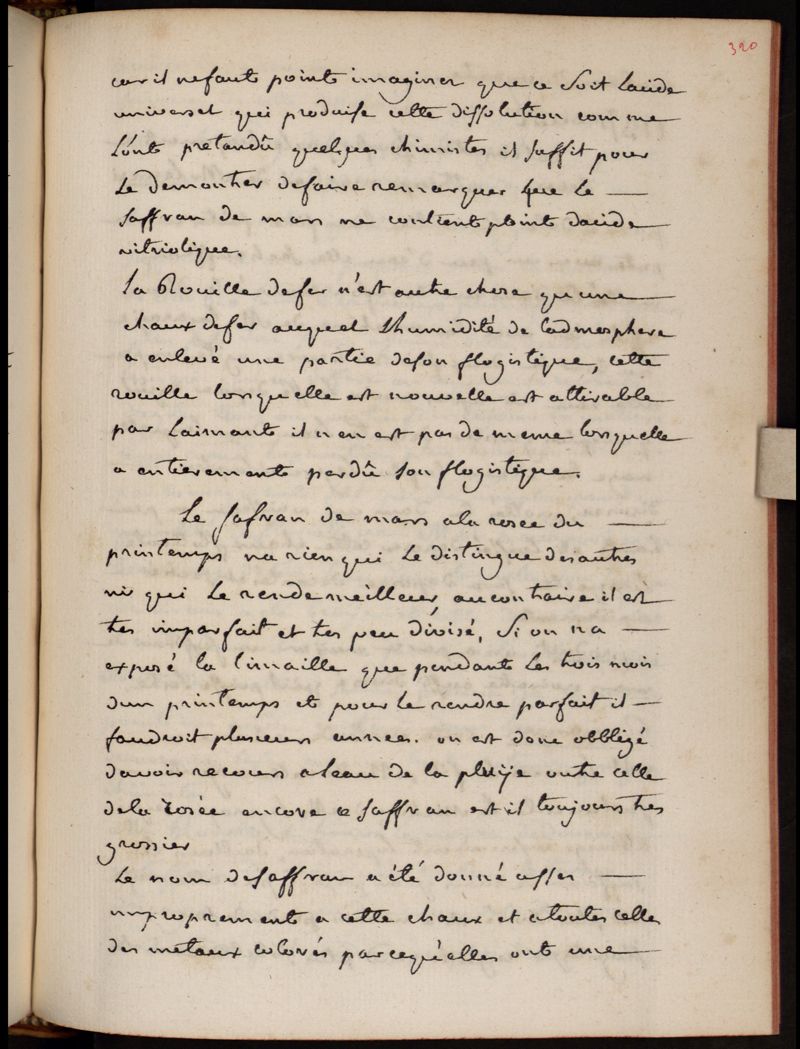 320
car il ne faut point imaginer que ce soit lacide
universel qui produise cette dissolution comme
lónt pretandû quelques chimistes il suffit pour
le demontrer de faire remarquer que le —
saffran de mars ne contient point dacide
vitriolique.
la Rouille defer n'est autre chose qu'une —
chaux defer auquel Lhumidité de ladmosphere
a enlevé une partie deson flogistique, cette
rouille lorsquelle est nouvelle est attirable
par Laimant il n en est pas de meme lorsquelle
a entierement perdû son flogistique.
Le safran de mars a la rosee du —
printemps na rien qui Le distingue des autres
ni qui Le rende meilleur, au contraire il est
tres imparfait et tres peu divisé, si on na —
exposé la limaille que pendant les trois mois
dun printemps et pour le rendre parfait il —
faudroit plusieurs années. on est donc obbligé
davoir recours a leau de la pluije outre celle
dela rosée encore ce saffran est il toujours tres
grossier
Le nom desaffran a été donné asses —
improprement a cette chaux et a toutes celles
des metaux colorés parcequ'elles ont une —